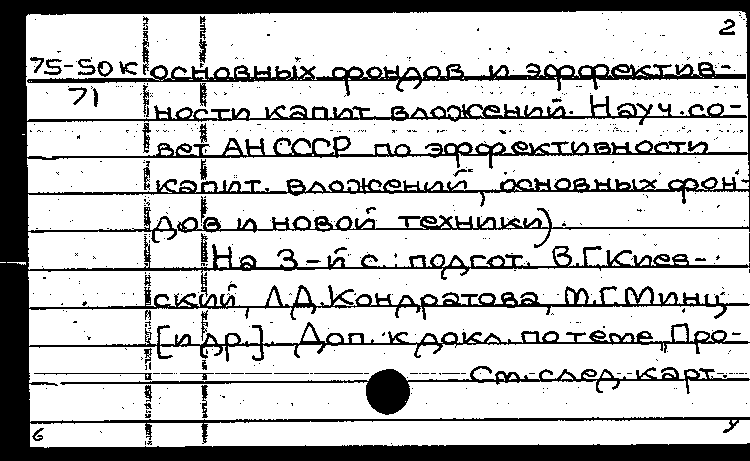 2
75-50к основных фондов и эффектив-
71
ности капит. вложений. Науч. со-
вет АН СССР по эффективности
капит. вложений, основных фон-
дов и новой техники).
На 3-й с.: подгот. В.Г. Киев-
ский, Л.Д. Кондратова, М.Г. Минц,
[и др.]. Доп. к докл. по теме „Про-
См. след. карт.
6
у